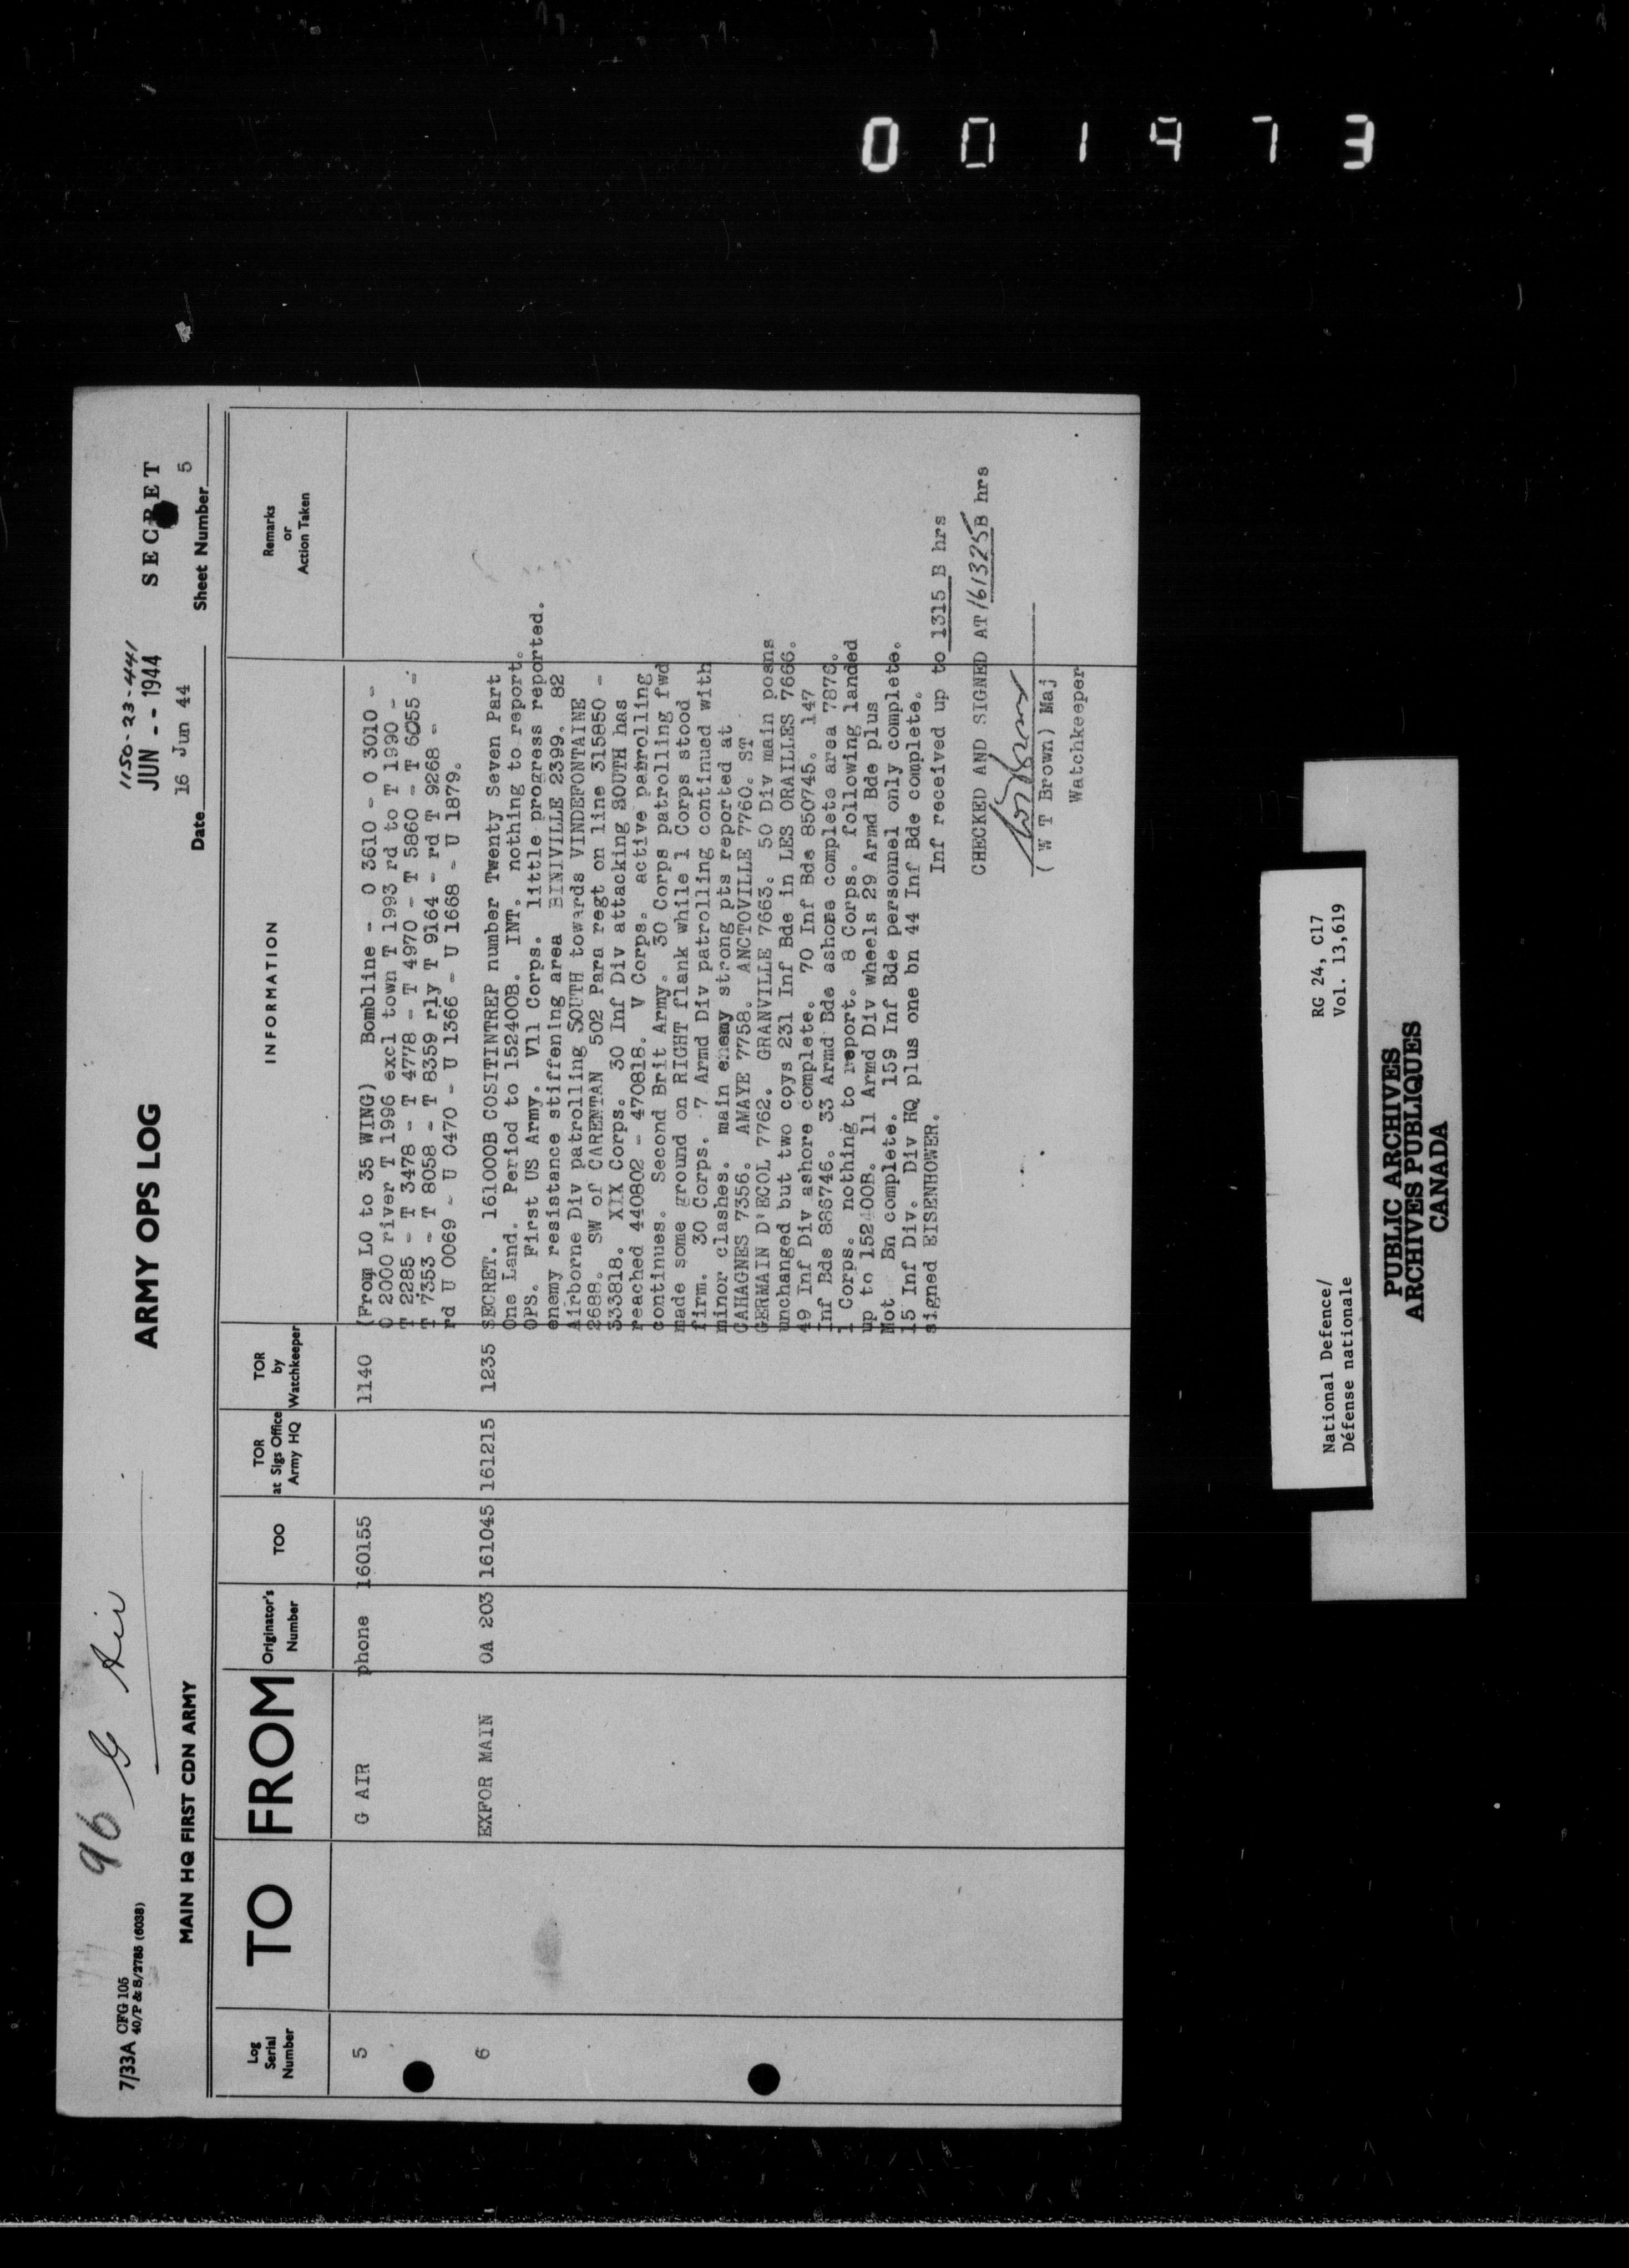 001973
7/33A CFG 105
40/P & S/2785 (6038)
96 G Air
MAIN HQ FIRST CDN ARMY
ARMY OPS LOG
1150-23-441
JUN - - 1944 SECRET
Date 16 Jun 44 Sheet Number 5
Log Serial Number
TO
FROM
Originator's Number
TOO
TOR at Sigs Office Army HQ
TOR by Watchkeeper
INFORMATION
Remarks or Action Taken
5 G AIR phone 160155 1140 (From LO to 35 WING) Bombline - O 3610 - O 3010 -
O 2000 river T 1996 excl town T 1993 rd to T 1990 -
T 2285 - T 3478 - T 4778 - T 4970 - T 5860 - T 6055 -
T 7353 - T 8058 - T 8359 rly T 9164 - rd T 9268 -
rd U 0069 - U 0470 - U 1366 - U 1668 - U 1879.
6 EXFOR MAIN OA 203 161045 161215 1235 SECRET. 161000B COSITINTREP number Twenty Seven Part
One Land. Period to 152400B. INT. nothing to report.
OPS. First US Army. V11 Corps. little progress reported.
enemy resistance stiffening area BINIVILLE 2399. 82
Airborne Div patrolling SOUTH towards VINDEFONTAINE
2688. SW of CARENTAN 502 Para regt on line 315850 -
333818. XIX Corps. 30 Inf Div attacking SOUTH has
reached 440802 - 470818. V Corps. active patrolling
continues. Second Brit Army. 30 Corps patrolling fwd
made some ground on RIGHT flank while 1 Corps stood
firm. 30 Corps. 7 Armd Div patrolling continued with
minor clashes. main enemy strong pts reported at
CAHAGNES 7356. AMAYE 7758. ANCTOVILLE 7760. ST
GERMAIN D'ECOL 7762. GRANVILLE 7663. 50 Div main posns
unchanged but two coys 231 Inf Bde in LES ORAILLES 7666.
49 Inf Div ashore complete. 70 Inf Bde 850745. 147
Inf Bde 886746. 33 Armd Bde ashore complete area 7876.
1 Corps. nothing to report. 8 Corps. following landed
up to 152400B. 11 Armd Div wheels 29 Armd Bde plus
Mot Bn complete. 159 Inf Bde personnel only complete.
15 Inf Div. Div HQ plus one bn 44 Inf Bde complete.
signed EISENHOWER.
Inf received up to 1315 B hrs
CHECKED AND SIGNED AT 161325B hrs
(W T Brown) Maj
Watchkeeper
National Defence/
Défense nationale
RG 24, C17
Vol. 13,619
PUBLIC ARCHIVES
ARCHIVES PUBLIQUES
CANADA